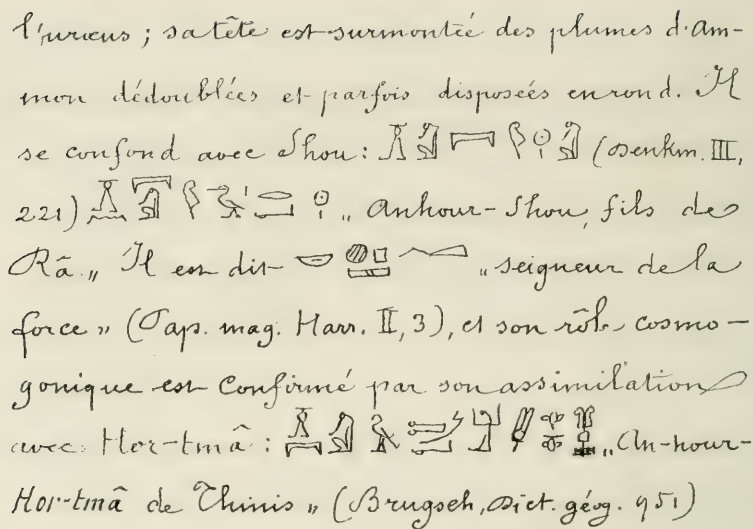 l'uræus ; sa tête est surmontée des plumes d'Am-
mon dédoublées et parfois disposées en rond. Il
se confond avec Shou : (Denkm. III,
221) „ Anhour-Shou, fils de
Râ. „ Il est dit „ seigneur de la
force „ (Pap. mag. Harr. II, 3), et son rôle cosmo-
gonique est confirmé par son assimilation
avec Hor-tmâ : „ An-hour-
Hor-tmâ de Thinis „ (Brugsch, Dict. géog. 951)